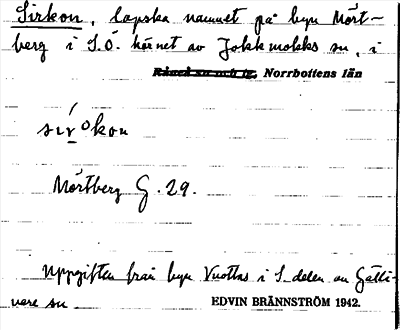 Sirkon, lapska namnet på byn Mört-
berg i S.Ö. hörnet av Jokkmokks sn, i
Råneå sn och tg, Norrbottens län
sirokon
Mörtberg G. 29.
Uppgiften från byn Vuottas i S. delen av Gälli-
vare sn
EDVIN BRÄNNSTRÖM 1942.